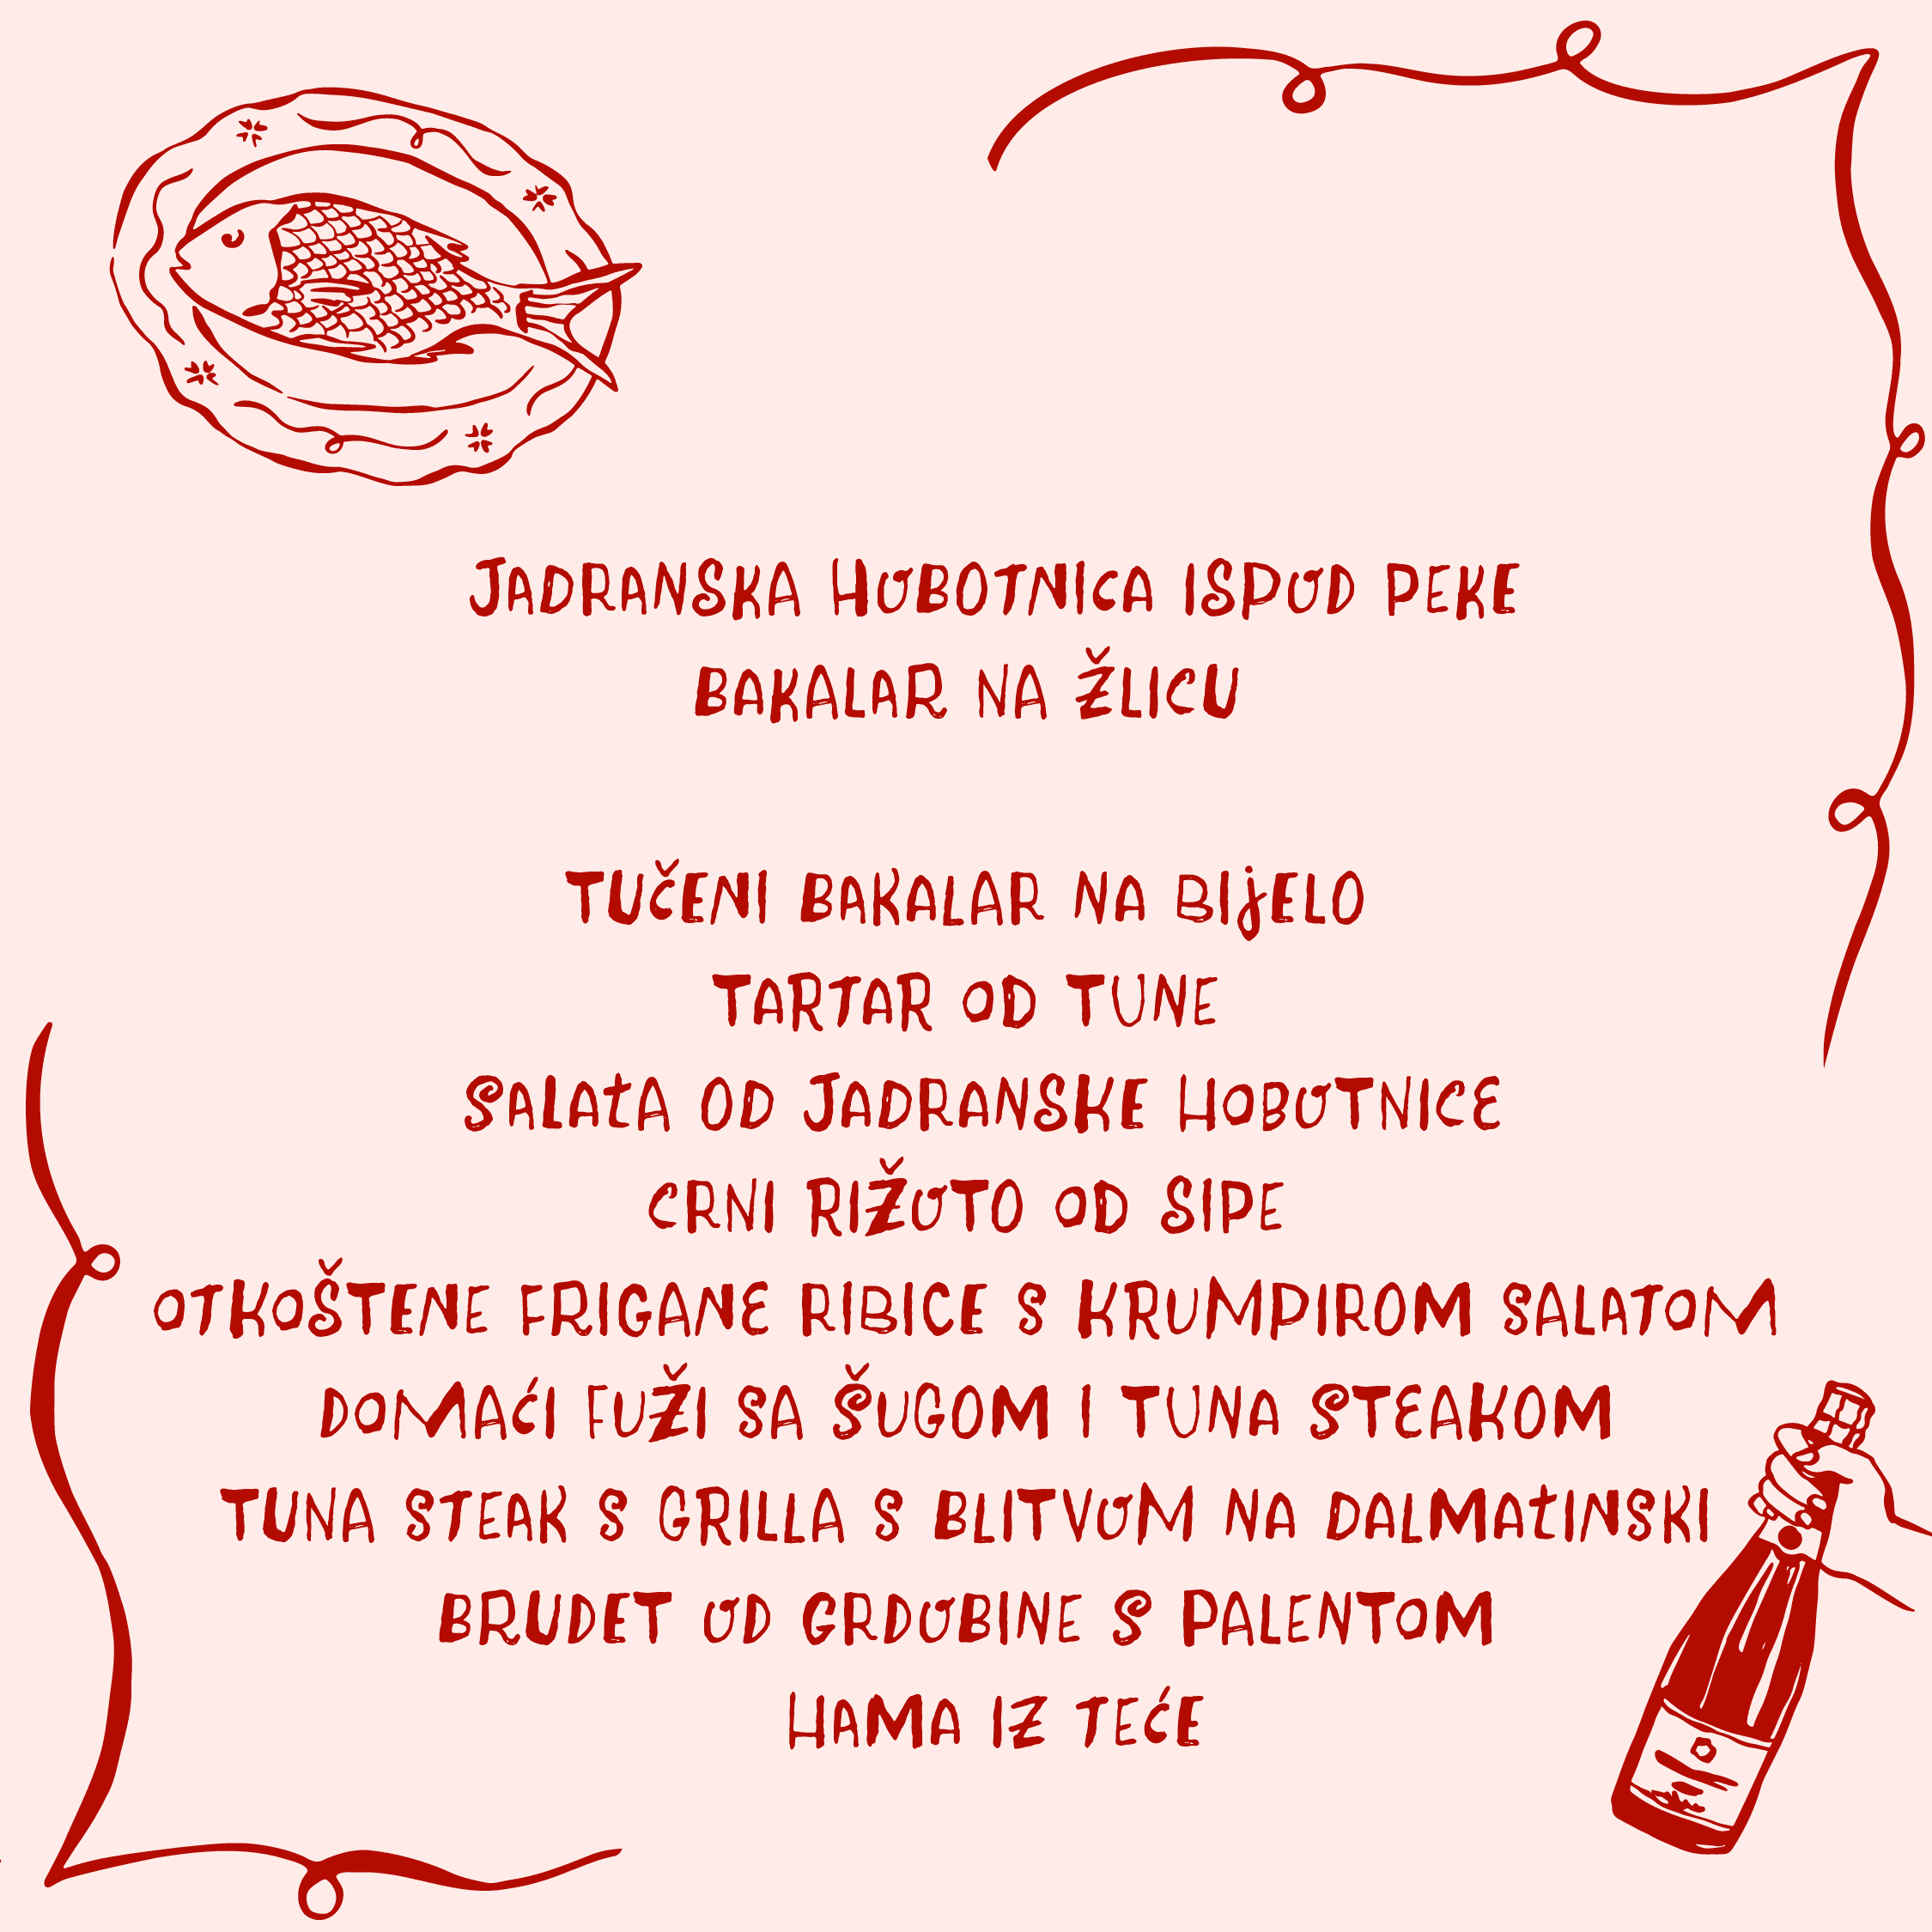 JADRANSKA HOBOTNICA ISPOD PEKE
BAKALAR NA ŽLICU
TUČENI BAKALAR NA BIJELO
TARTAR OD TUNE
SALATA OD JADRANSKE HOBOTNICE
CRNI RIŽOTO OD SIPE
OTKOŠTENE FRIGANE RIBICE S KRUMPIROM SALATOM
DOMAĆI FUŽI SA ŠUGOM I TUNA STEAKOM
TUNA STEAK S GRILLA S BLITVOM NA DALMATINSKI
BRUDET OD GRDOBINE S PALENTOM
HAMA IZ TEĆE